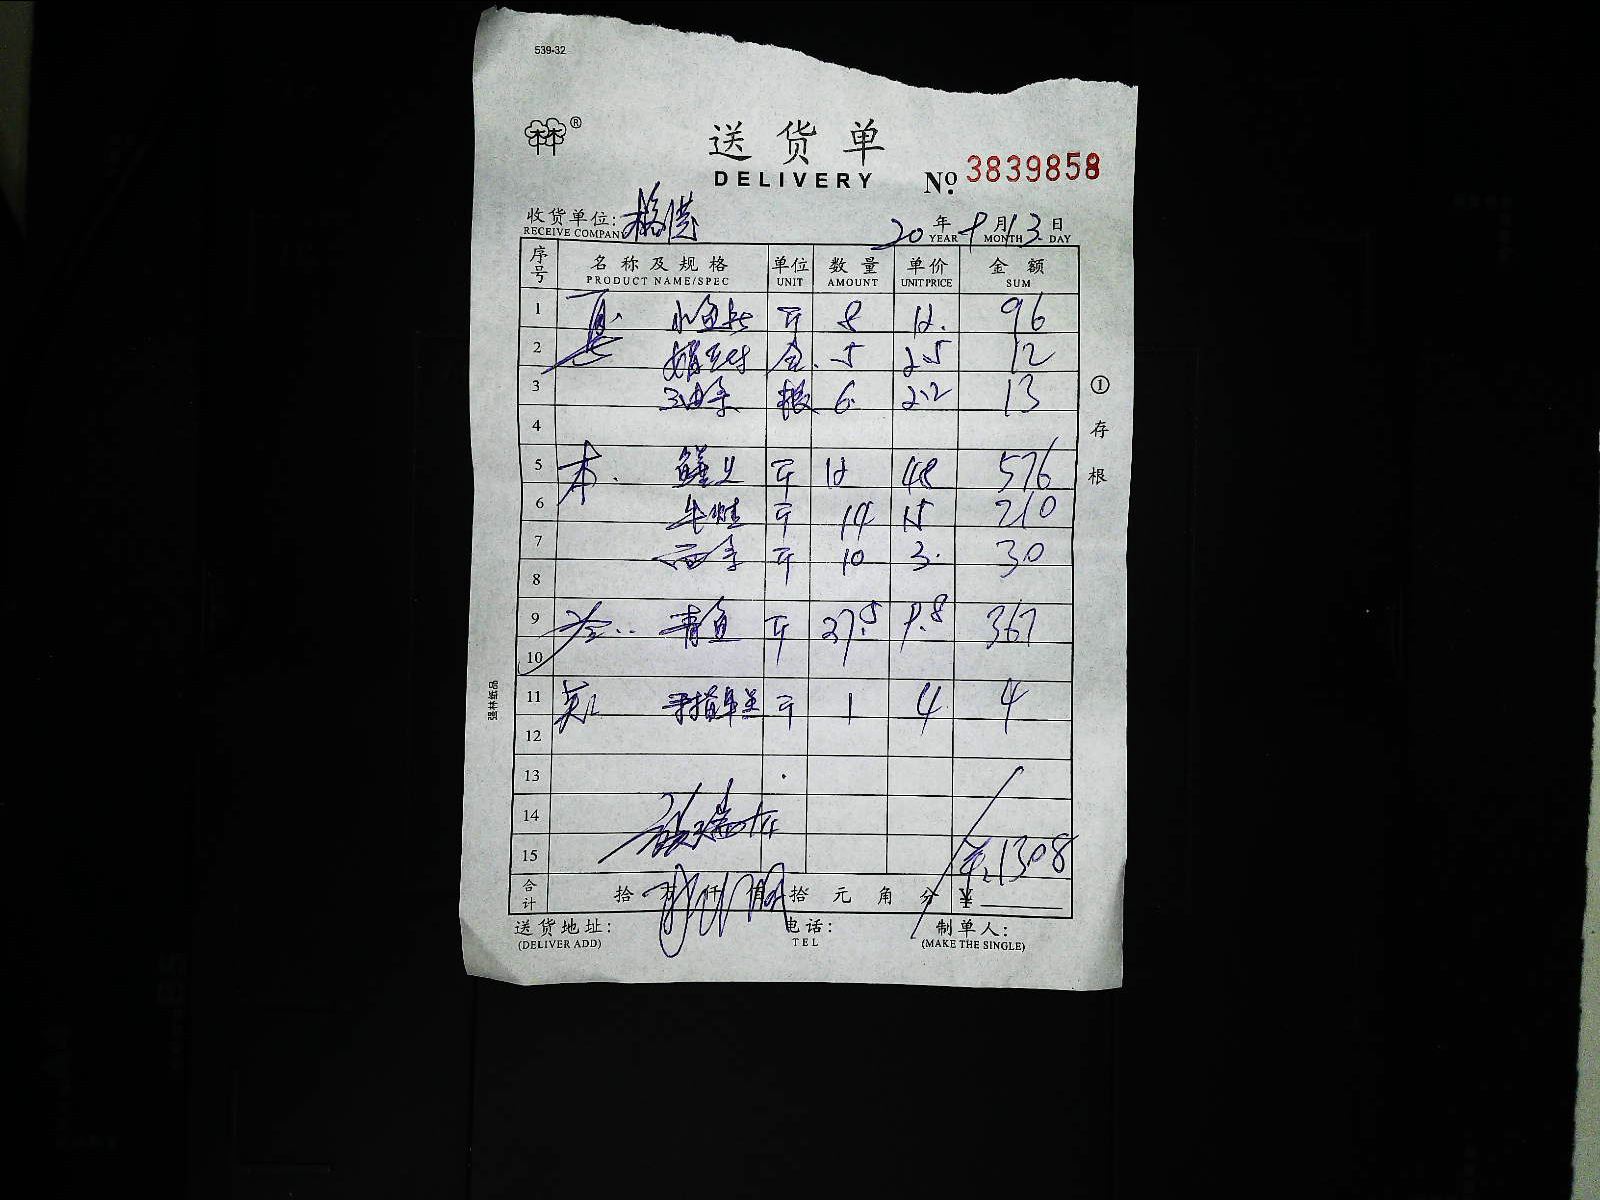 539-32
林林®
送货单
DELIVERY
No. 3839858
收货单位:
RECEIVE COMPANY
20 年 9 月 13 日
YEAR MONTH DAY
序号 名称及规格 单位 数量 单价 金额
PRODUCT NAME/SPEC UNIT AMOUNT UNIT PRICE SUM
1 斤 8 12. 96
2 盒 5 2.5 12
3 油条 根 6 2.2 13
4
5 本 斤 12 48 576
6 牛 斤 14 15 210
7 斤 10 3 30
8
9 冷 青鱼 斤 37.5 9.8 367
10
11 斤 1 4 4
12
13
14
15 ¥1308
合计 拾 万 仟 佰 拾 元 角 分 ¥
送货地址: 电话: 制单人:
(DELIVER ADD) TEL (MAKE THE SINGLE)
①存根
强林纸品